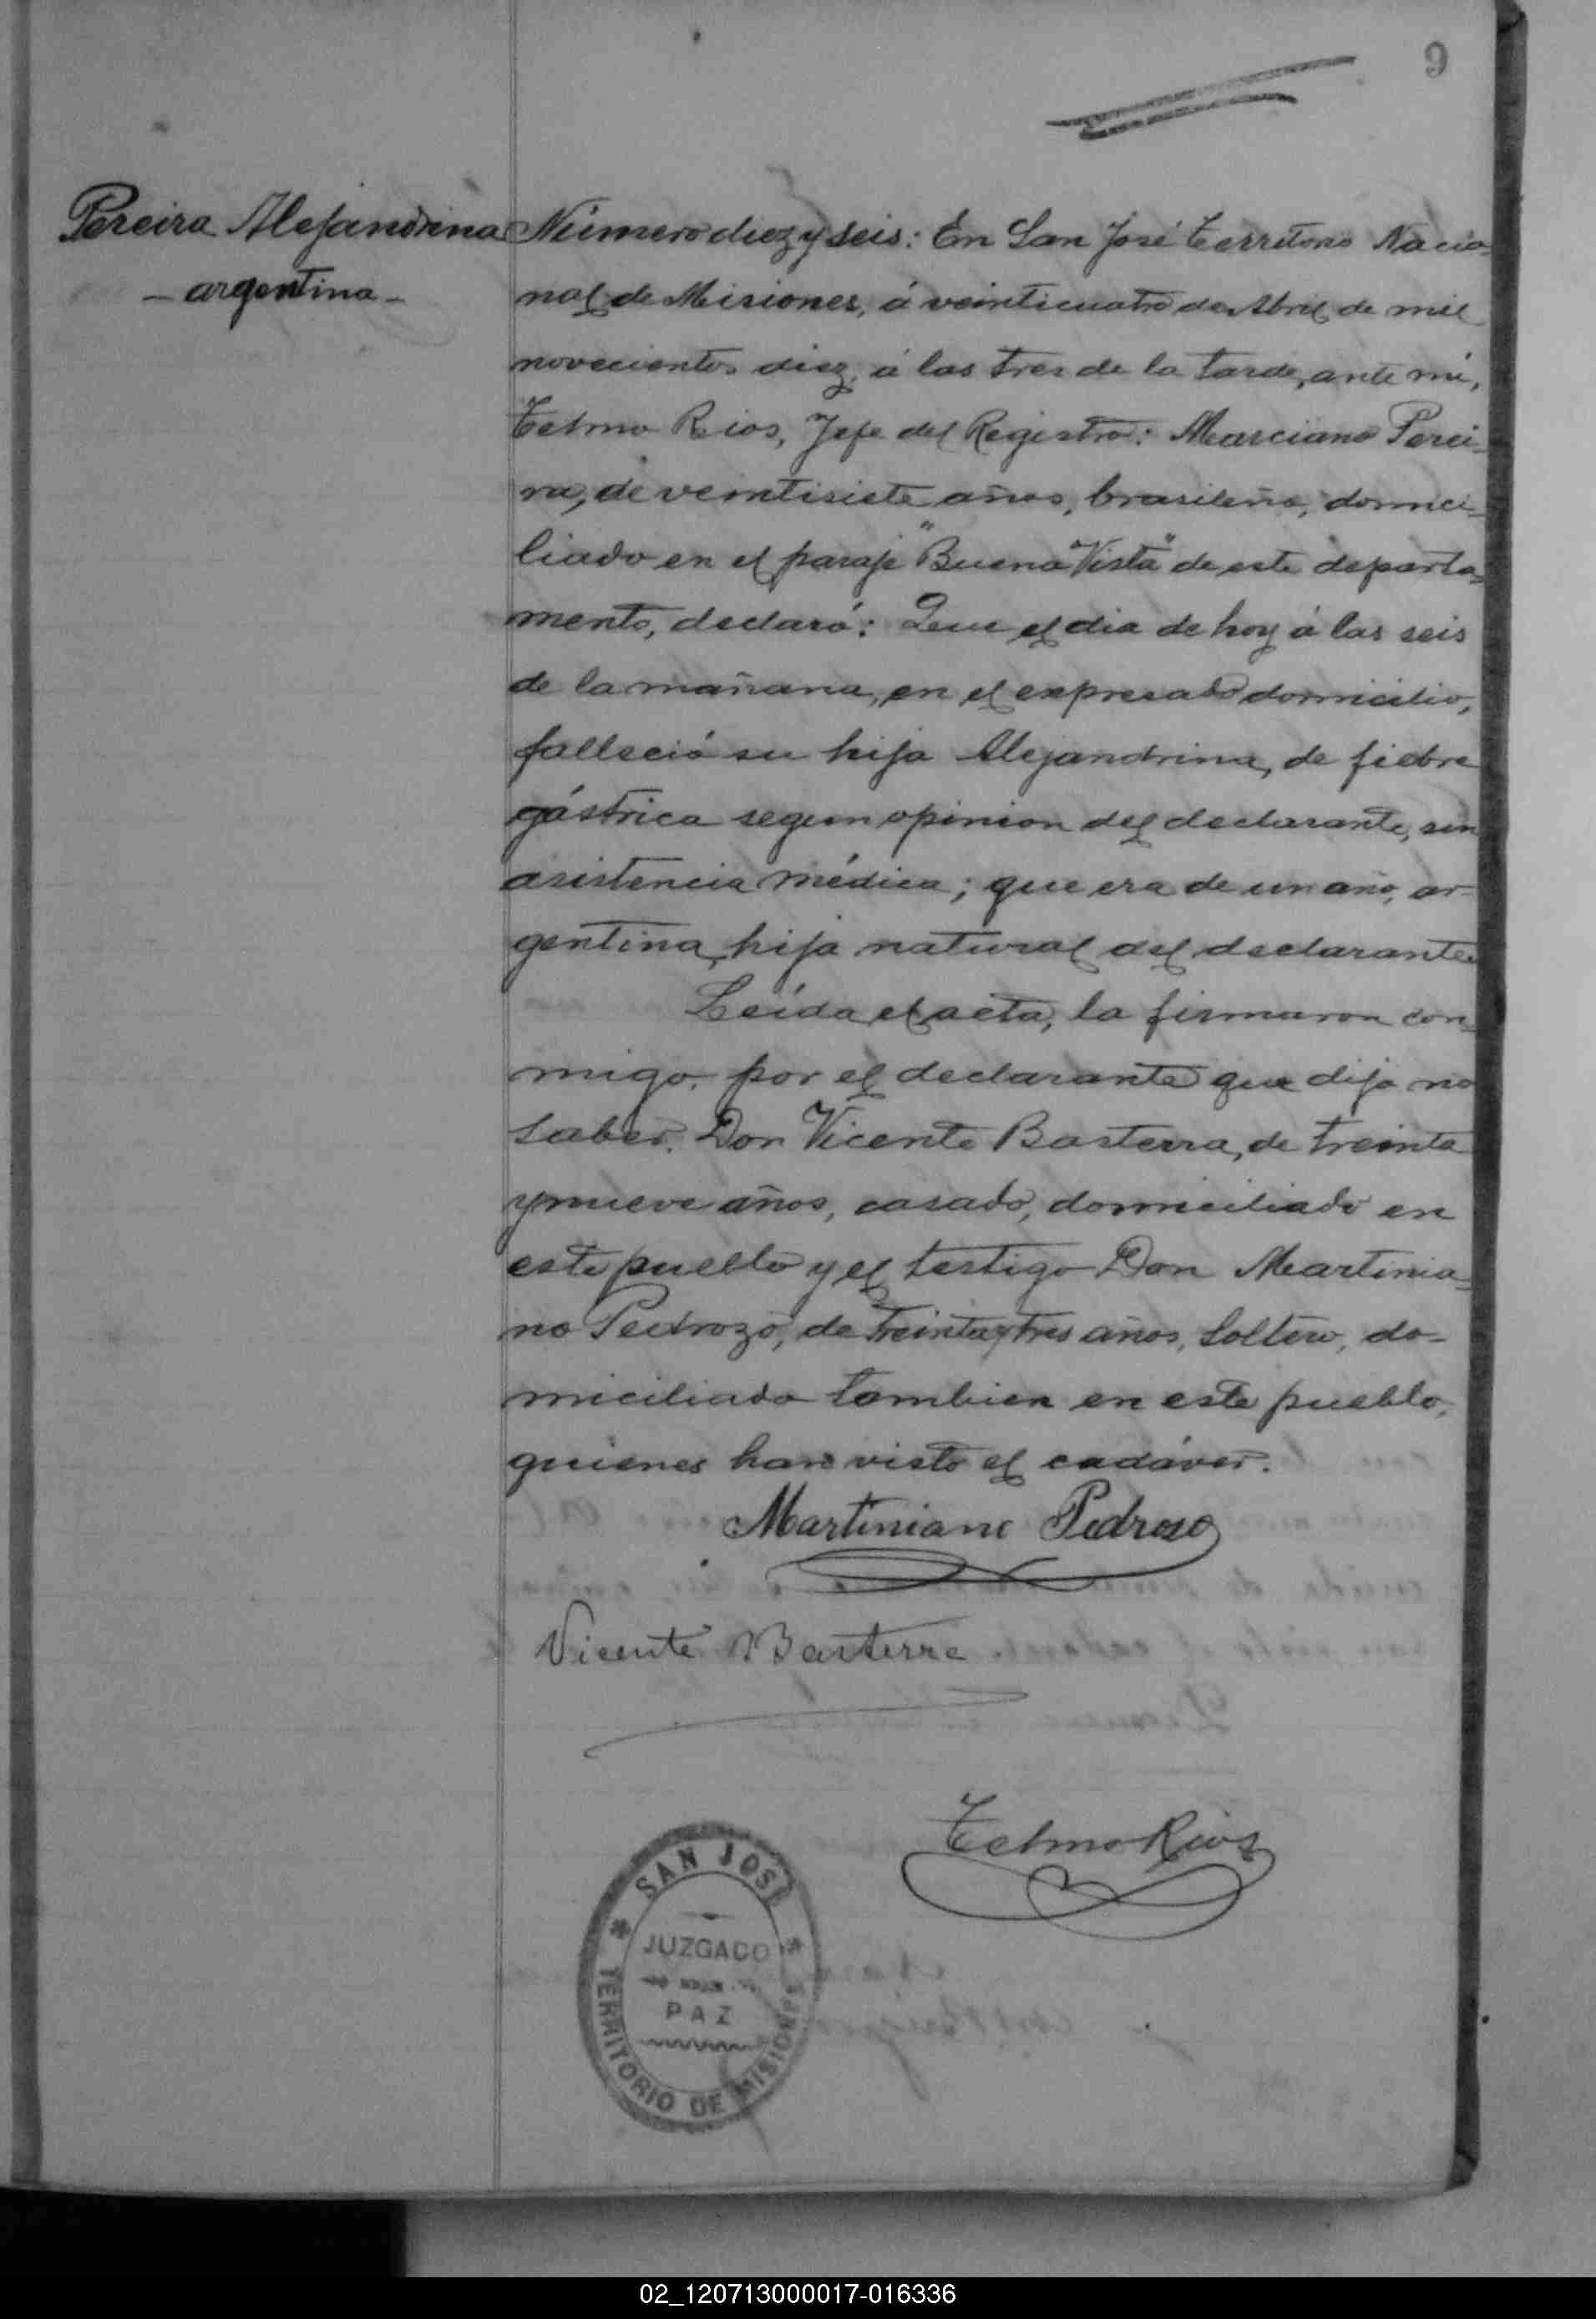 9
Pereira Alejandrina
- argentina -
Número diez y seis: En San José Territorio Nacio-
nal de Misiones, á veinticuatro de Abril de mil
novecientos diez, á las tres de la tarde, ante mí,
Telmo Rios, Jefe del Registro: Marciano Perei-
ra, de veintisiete años, brasileño, domici-
liado en el paraje "Buena Vista" de este departa-
mento, declaró: Que el dia de hoy á las seis
de la mañana, en el expresado domicilio,
falleció su hija Alejandrina, de fiebre
gástrica segun opinion del declarante, sin
asistencia médica; que era de un año, ar-
gentina, hija natural del declarante.
Leída el acta, la firmaron con-
migo, por el declarante que dijo no
saber, Don Vicente Basterra, de treinta
y nueve años, casado, domiciliado en
este pueblo y el testigo Don Martinia-
no Pedrozo, de treinta y tres años, soltero, do-
miciliado tambien en este pueblo,
quienes han visto el cadáver.
Martiniano Pedrozo
Vicente Basterra
Telmo Rios
SAN JOSÉ
JUZGADO
PAZ
TERRITORIO DE MISIONES
02_120713000017-016336